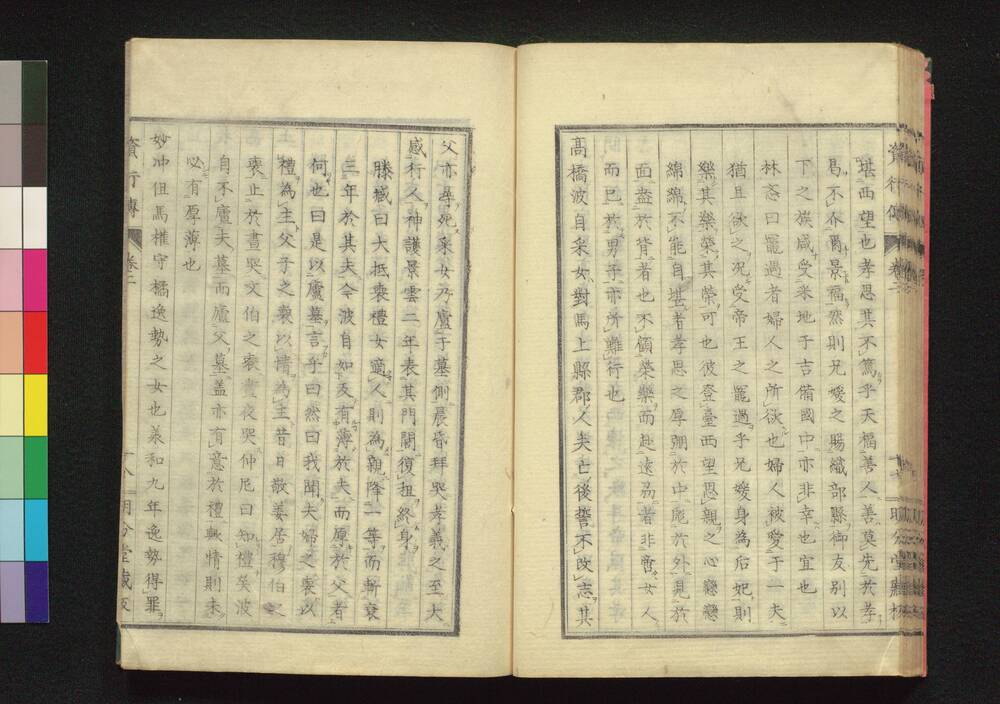 堪西望也孝思其不篤乎天福善人善莫先於孝
易不介爾景福然則兄媛之賜織部縣御友別以
下之族咸受釆地于吉備國中亦非幸也宜也
林恣曰寵遇者婦人之所欲也婦人被愛于一夫
猶且欲之况受帝王之寵遇乎兄媛身為后妃則
樂其樂榮其榮可也彼登臺西望思親之心戀戀
綿綿不能自堪者孝思之厚朝於中而於外見於
面盎於背者也不顧榮樂而赴遠者非啻女人
而已於男子亦所難行也
高橋波自采女對馬上縣郡人夫亡後誓不改志其
父亦尋死采女乃廬于墓側晨昏拜哭孝義之至大
感行人神護景雲二年表其門閭復租終身
滕樴曰大抵喪禮女適人則為親降一等而斬衰
三年於其夫今波自如反有薄於夫而厚於父者
何也曰是以廬墓言乎曰然曰我聞夫婦之喪以
禮為主父子之喪以情為主昔日敬姜居穆伯之
喪止於晝哭文伯之喪晝夜哭仲尼曰知禮矣波
自不廬夫墓而廬父墓蓋亦有意於禮歟情則未
必有厚薄也
妙冲但馬權守橘逸勢之女也承和九年逸勢得罪
資行傳 卷二
十八
明分堂藏板
資行傳 卷二